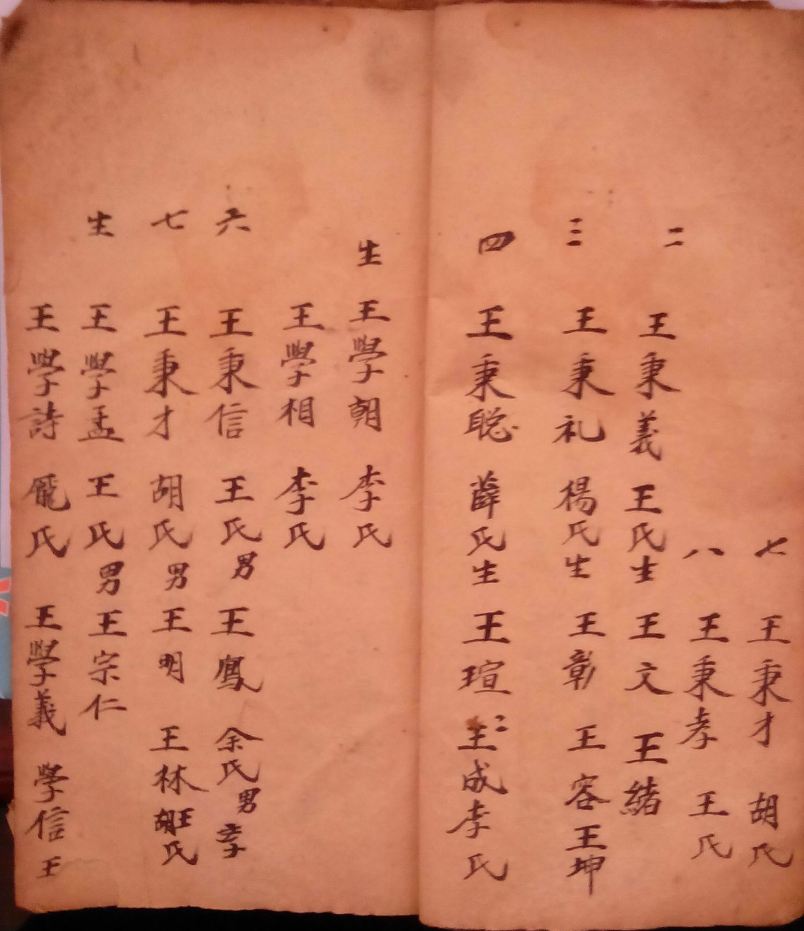 七 王秉才 胡氏
八 王秉孝 王氏
二 王秉義 王氏生 王文 王緒
三 王秉礼 楊氏生 王彰 王容 王坤
四 王秉聪 薛氏生 王瑄 二王成李氏
生 王學朝 李氏
王學相 李氏
六 王秉信 王氏男 王鳳 余氏男
七 王秉才 胡氏男 王明 王林 胡王氏
生 王學孟 王氏男 王宗仁
王學詩 龎氏 王學義 學信王